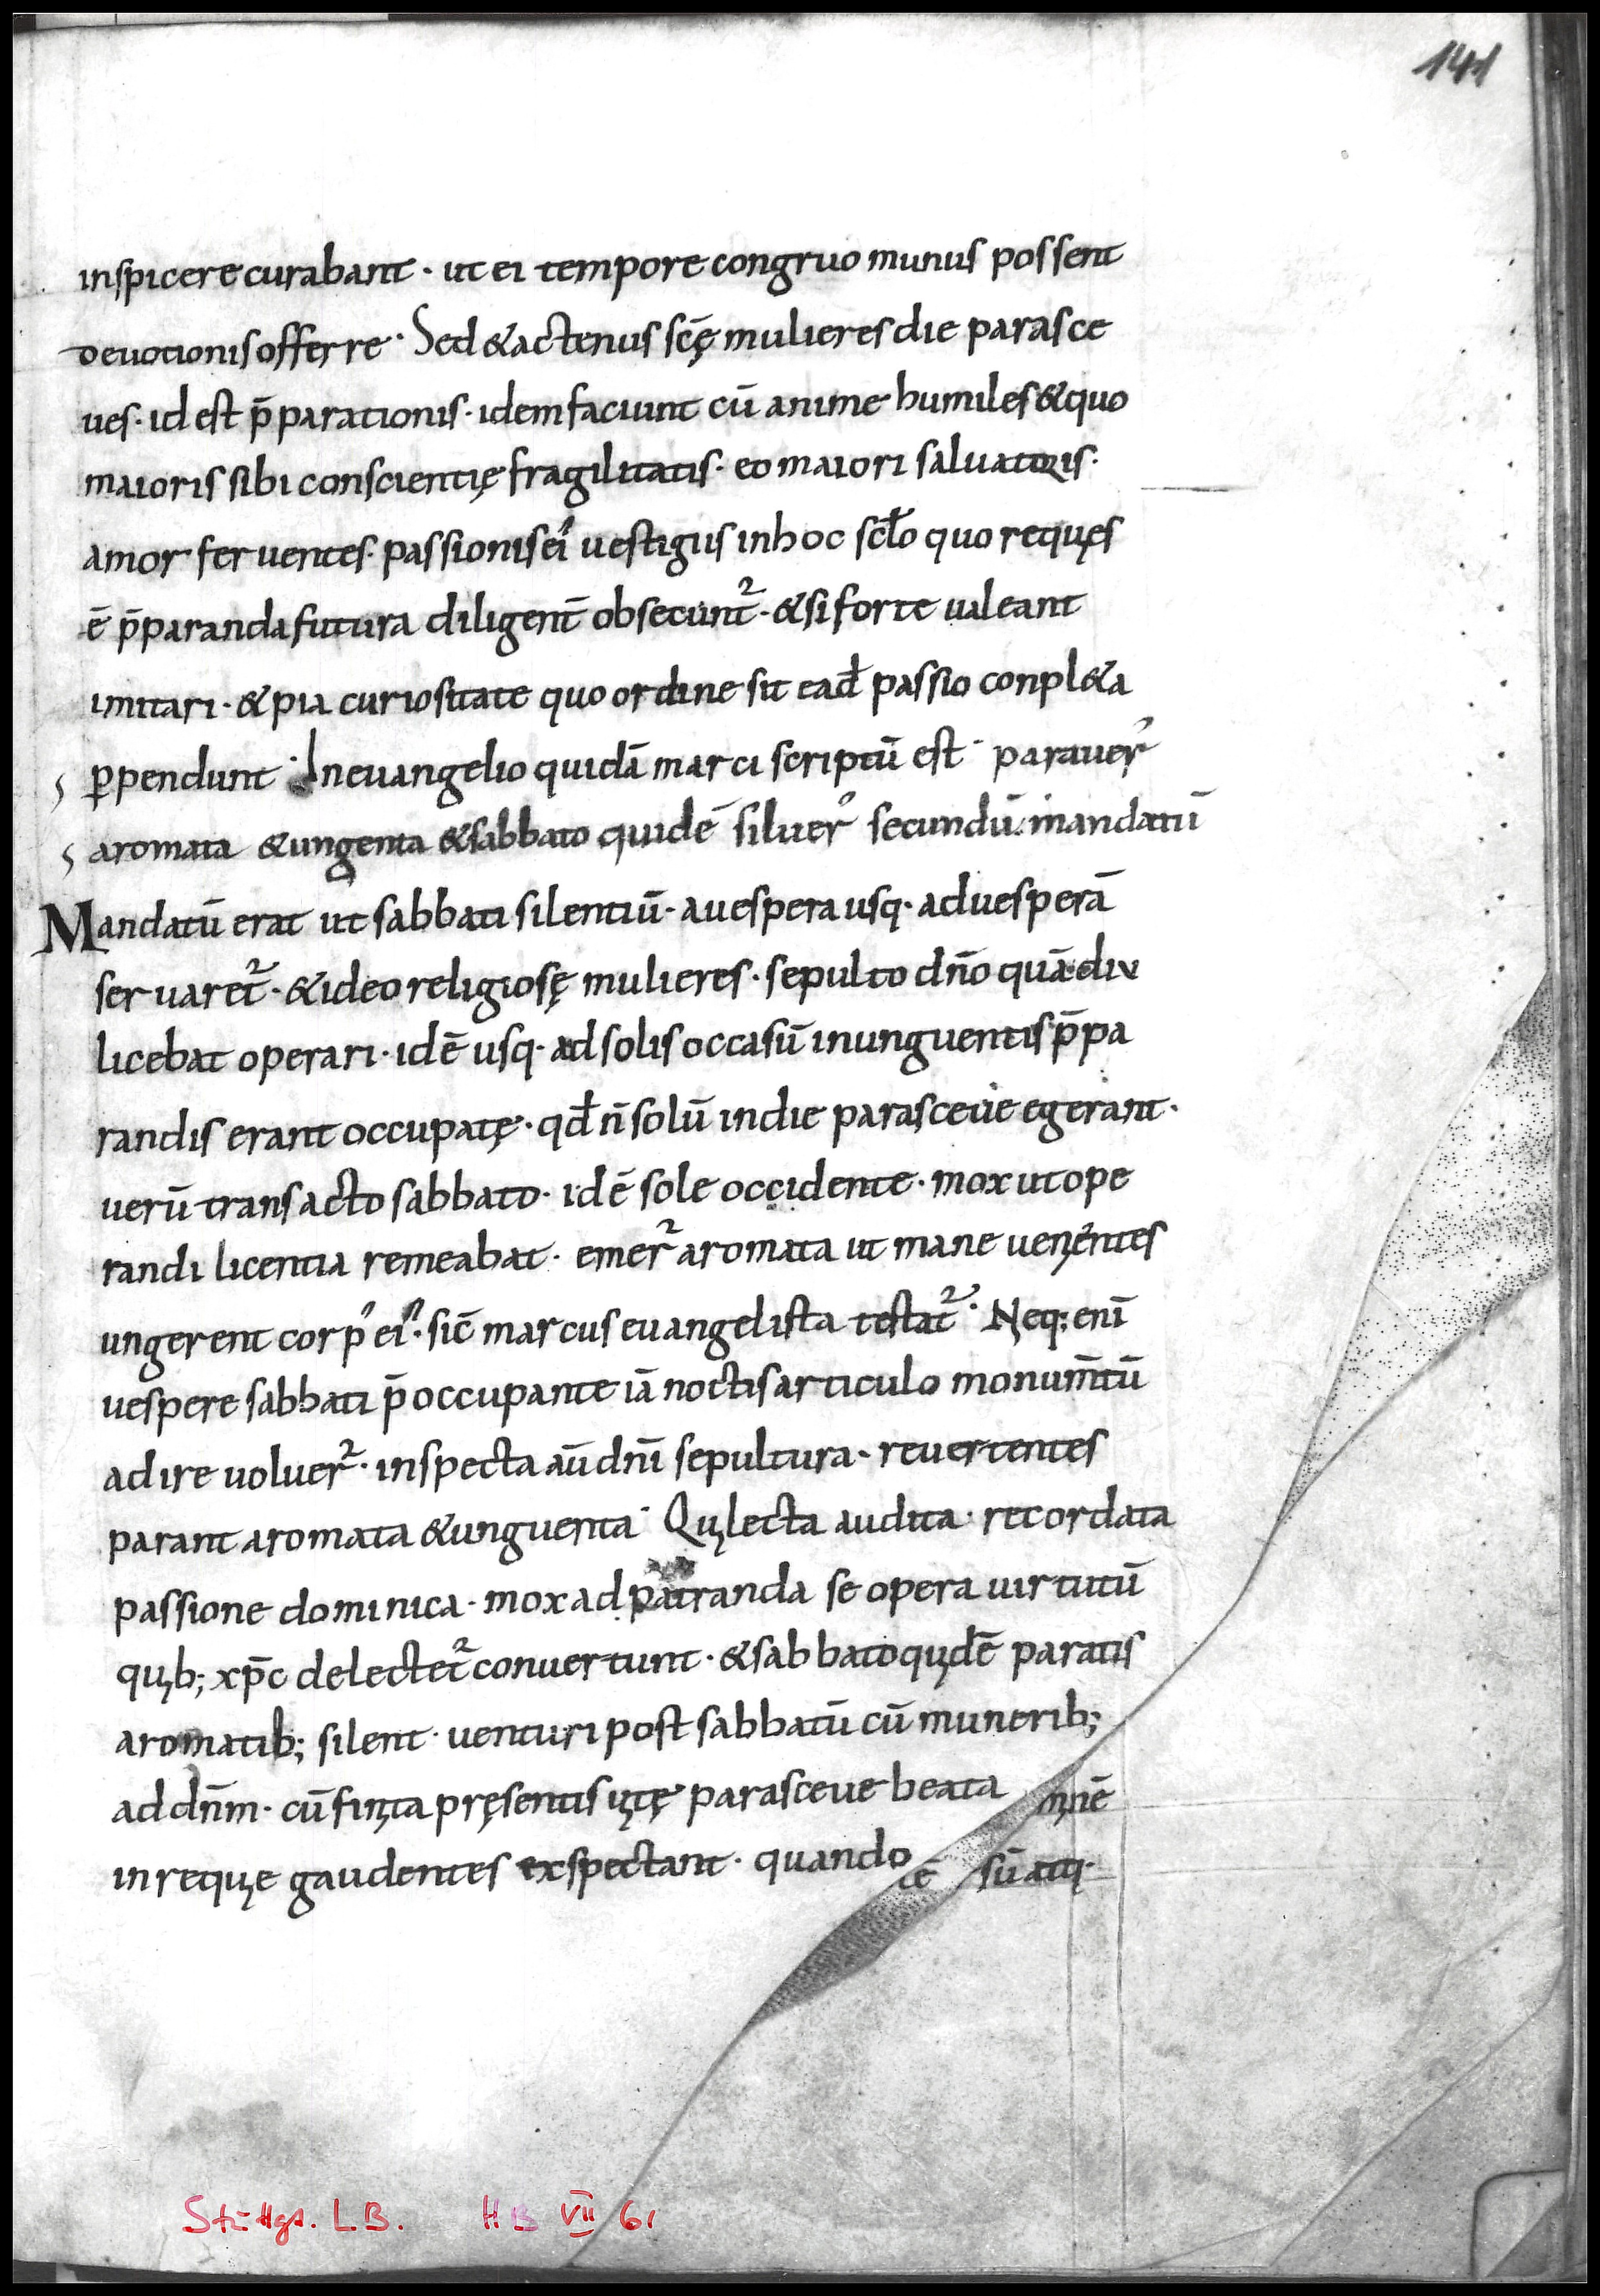 141
inspicere curabant · ut ei tempore congruo munus possent
devotionis offerre · Sed & actenus scę̄ mulieres die parasce
ues · id est p̄parationis · idem faciunt cū anime humiles & quo
maioris sibi conscientię fragilitatis · eo maiori saluatoris ·
amor feruentes · passionis ei᾽ uestigiis in hoc scl̄o quo requįes
ē p̄paranda futura diligent̄ obsecunt᷑ · & si forte ualeant
imitari · & pia curiositate quo ordine sit ead̄ passio conpl&a
ꝑpendunt · In euangelio quidā marci scriptū est · parauer᾽
aromata & ungenta & sabbato quidē siluer᾽ secundū mandatū
Mandatū erat ut sabbati silentiū · a uespera usq· ad uesperā
seruaret᷑ · & ideo religiosę mulieres · sepulto dn̄o quādiu
licebat operari · idē usq· ad solis occasū in unguentis p̄pa
randis erant occupatę · qd̄ n̄ solū in die parasceue egerant ·
uerū transacto sabbato · idē sole occidente · mox ut ope
randi licentia remeabat · emer᷑ aromata ut mane uenįentes
ungerent corp᾽ ei᾽ · sic̄ marcus euangelista testat᷑ · Neq; enī
uespere sabbati p̄occupante iā noctis articulo monum̄tū
adire uoluer᷑ · inspecta aū dn̄i sepultura · reuertentes
parant aromata & unguenta · Qųlecta audita · recordata
passione dominica · mox ad patranda se opera uirtutū
quįb; xp̄c delectet᷑ conuertunt · & sabbato quįdē paratis
aromatib; silent · uenturi post sabbatū cū munerib;
ad dn̄m · cū finįta pręsentis uįtę parasceue beata
in requįe gaudentes exspectant · quando sū atq·
Stuttgt. LB. HB VII 61